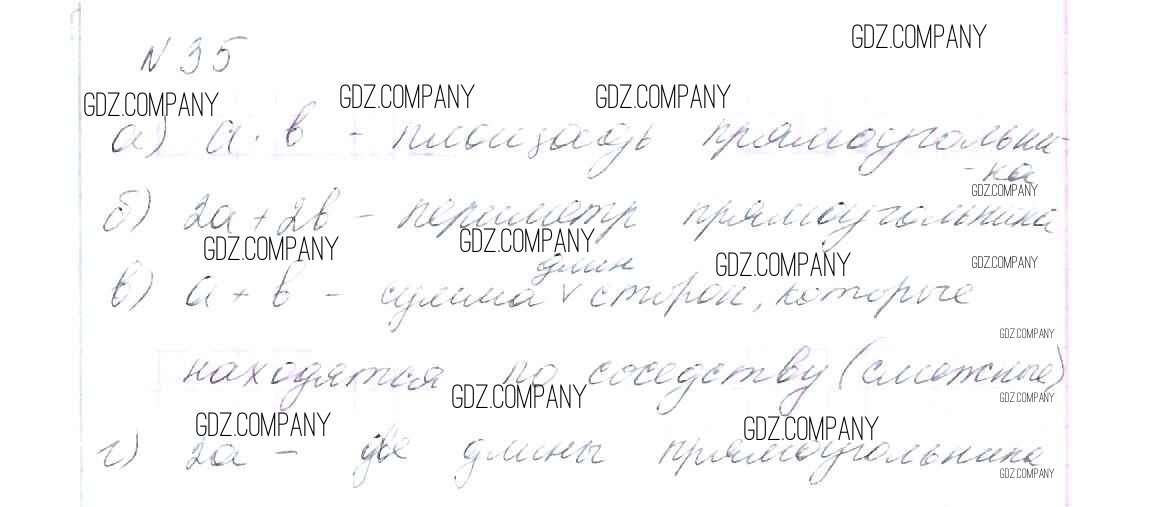 GDZ.COMPANY
N 35
GDZ.COMPANY GDZ.COMPANY GDZ.COMPANY
а) a · b - площадь прямоугольни-
-ка
GDZ.COMPANY
б) 2a + 2b - периметр прямоугольника
GDZ.COMPANY GDZ.COMPANY GDZ.COMPANY GDZ.COMPANY
длин
в) a + b - сумма v сторон, которые
GDZ.COMPANY
находятся по соседству (смежные)
GDZ.COMPANY GDZ.COMPANY
GDZ.COMPANY GDZ.COMPANY
г) 2a - две длины прямоугольника
GDZ.COMPANY